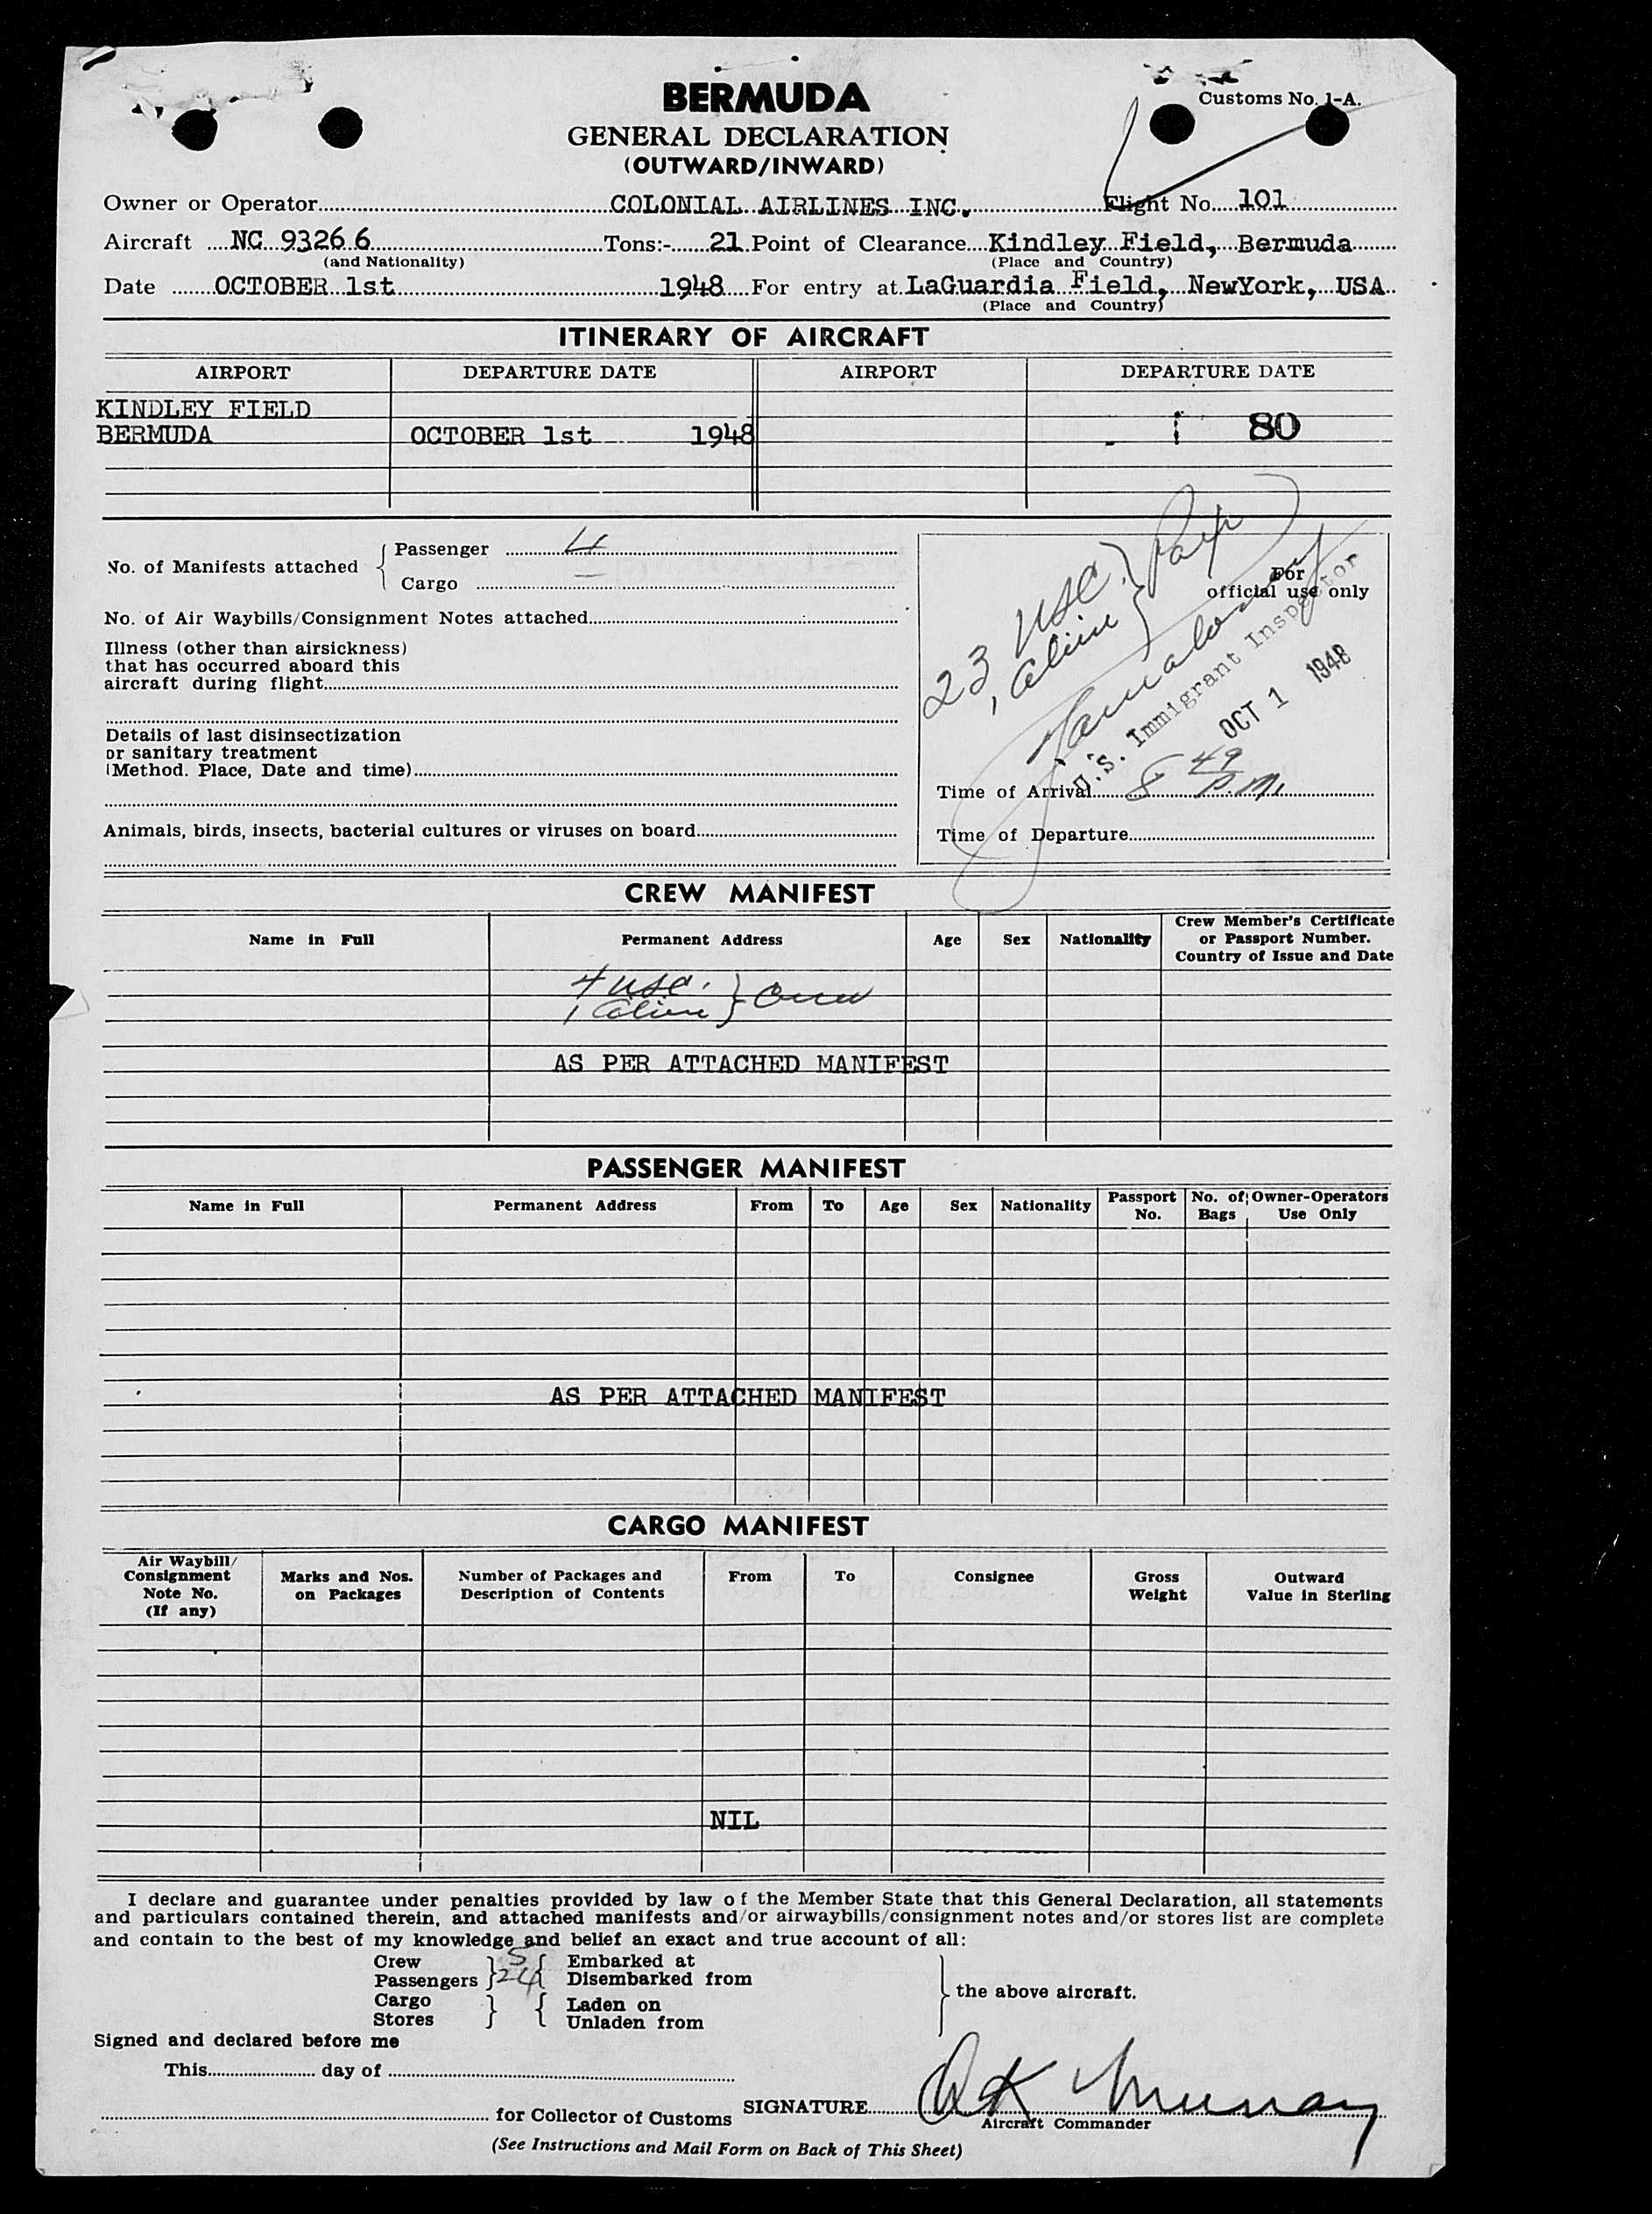 BERMUDA
Customs No. 1-A.
GENERAL DECLARATION
(OUTWARD/INWARD)
Owner or Operator COLONIAL AIRLINES INC. Flight No. 101
Aircraft NC 93266 Tons:- 21 Point of Clearance Kindley Field, Bermuda
(and Nationality) (Place and Country)
Date OCTOBER 1st 1948 For entry at LaGuardia Field, NewYork, USA
(Place and Country)
ITINERARY OF AIRCRAFT
AIRPORT DEPARTURE DATE AIRPORT DEPARTURE DATE
KINDLEY FIELD
BERMUDA OCTOBER 1st 1948 80
No. of Manifests attached { Passenger 4
Cargo —
No. of Air Waybills/Consignment Notes attached
Illness (other than airsickness)
that has occurred aboard this
aircraft during flight
Details of last disinsectization
or sanitary treatment
(Method. Place, Date and time)
Animals, birds, insects, bacterial cultures or viruses on board
For
official use only
23 USC. } Pass
1 Alien
U.S. Immigrant Inspector
OCT 1 1948
Time of Arrival 8 49 P.M.
Time of Departure
CREW MANIFEST
Name in Full Permanent Address Age Sex Nationality Crew Member's Certificate
or Passport Number.
Country of Issue and Date
4 USC. } Crew
1 Alien
AS PER ATTACHED MANIFEST
PASSENGER MANIFEST
Name in Full Permanent Address From To Age Sex Nationality Passport No. No. of Bags Owner-Operators Use Only
AS PER ATTACHED MANIFEST
CARGO MANIFEST
Air Waybill/
Consignment
Note No.
(If any)
Marks and Nos.
on Packages
Number of Packages and
Description of Contents
From To Consignee
Gross
Weight
Outward
Value in Sterling
NIL
I declare and guarantee under penalties provided by law of the Member State that this General Declaration, all statements
and particulars contained therein, and attached manifests and/or airwaybills/consignment notes and/or stores list are complete
and contain to the best of my knowledge and belief an exact and true account of all:
Crew } 5 { Embarked at
Passengers } 24 { Disembarked from
} the above aircraft.
Cargo } { Laden on
Stores } { Unladen from
Signed and declared before me
This day of
for Collector of Customs SIGNATURE Murray
Aircraft Commander
(See Instructions and Mail Form on Back of This Sheet)